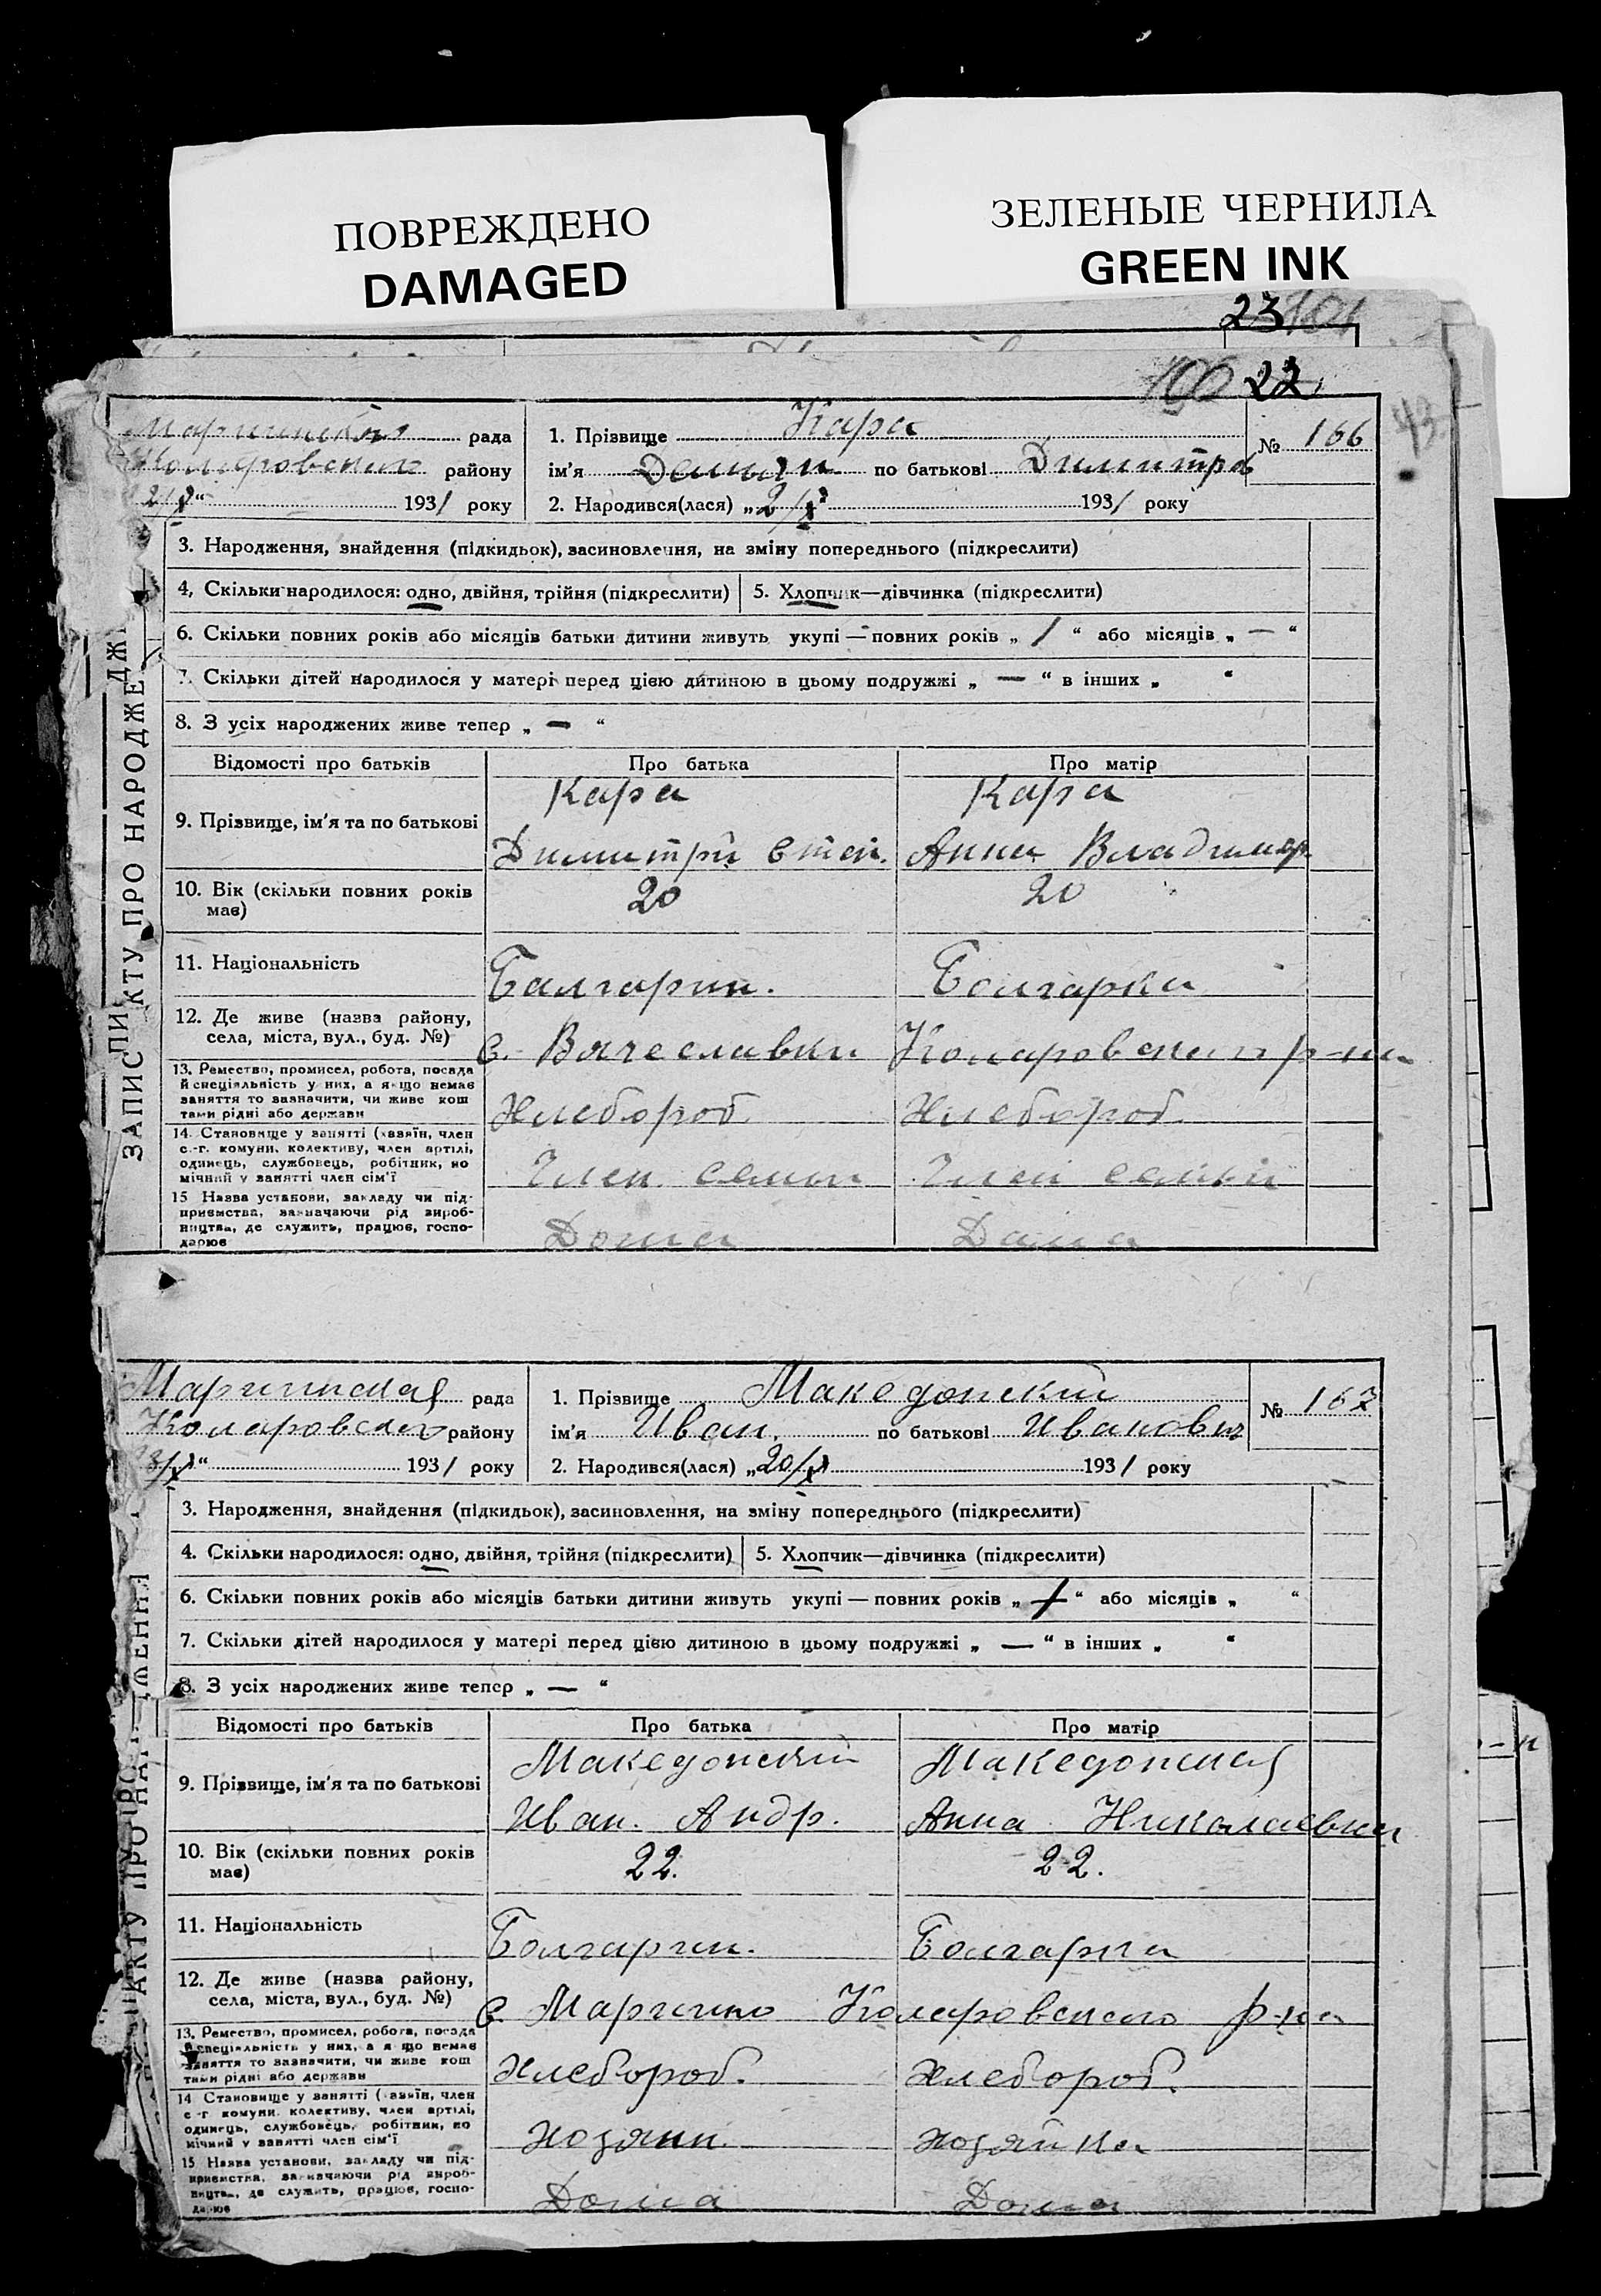 ПОВРЕЖДЕНО
DAMAGED
ЗЕЛЕНЫЕ ЧЕРНИЛА
GREEN INK
23
22
43
Маринская рада
Коларовского району
1931 року
1. Прізвище Кара
ім'я Демьян по батькові Димитров
№ 166
2. Народився(лася) „2/X 1931 року
3. Народження, знайдення (підкидьок), засиновлення, на зміну попереднього (підкреслити)
4, Скільки народилося: одно, двійня, трійня (підкреслити) 5. Хлопчик—дівчинка (підкреслити)
6. Скільки повних років або місяців батьки дитини живуть укупі — повних років „ 1 “ або місяців „ — “
7. Скільки дітей народилося у матері перед цією дитиною в цьому подружжі „ — “ в інших „ “
8. З усіх народжених живе тепер „ — “
Відомості про батьків Про батька Про матір
9. Прізвище, ім'я та по батькові
Кара Кара
Димитрй Анна Владимир.
10. Вік (скільки повних років має) 20 20
11. Національність Балгарин. Болгарка
12. Де живе (назва району, села, міста, вул., буд. №) с. Вячеславка Коларовского р-на
13. Ремество, промисел, робота, посада й спеціяльність у них, а якщо немає заняття то зазначити, чи живе кош тами рідні або держави Хлебороб Хлебороб.
14. Становище у занятті (хазяїн, член с.-г. комуни, колективу, член артілі, одинець, службовець, робітник, помічний у занятті член сім'ї Член семьи Член семьи
15 Назва установи, закладу чи підприємства, зазначаючи рід виробництва, де служить, працює, господарює Дома Дома
ЗАПИС АКТУ ПРО НАРОДЖЕ
Маринская рада
Коларовского району
1931 року
1. Прізвище Македонский
ім'я Иван. по батькові Иванович
№ 167
2. Народився(лася) „20/X 1931 року
3. Народження, знайдення (підкидьок), засиновлення, на зміну попереднього (підкреслити)
4. Скільки народилося: одно, двійня, трійня (підкреслити) 5. Хлопчик—дівчинка (підкреслити)
6. Скільки повних років або місяців батьки дитини живуть укупі — повних років „ 1 “ або місяців „ “
7. Скільки дітей народилося у матері перед цією дитиною в цьому подружжі „ — “ в інших „ “
8. З усіх народжених живе тепер „ — “
Відомості про батьків Про батька Про матір
9. Прізвище, ім'я та по батькові
Македонский Македонская
Иван. Андр. Анна Николаевна
10. Вік (скільки повних років має) 22. 22.
11. Національність Болгарин. Болгарка
12. Де живе (назва району, села, міста, вул., буд. №) с. Марино Коларовского р-на
13. Ремество, промисел, робота, посада й спеціяльність у них, а якщо немає заняття то зазначити, чи живе кош тами рідні або держави Хлебороб. Хлебороб.
14 Становище у занятті (хазяїн, член с-г комуни, колективу, член артілі, одинець, службовець, робітник, помічний у занятті член сім'ї Хозяин. Хозяйка
15 Назва установи, закладу чи підприємства, зазначаючи рід виробництва, де служить, працює, господарює Дома Дома
АКТУ ПРО НАР